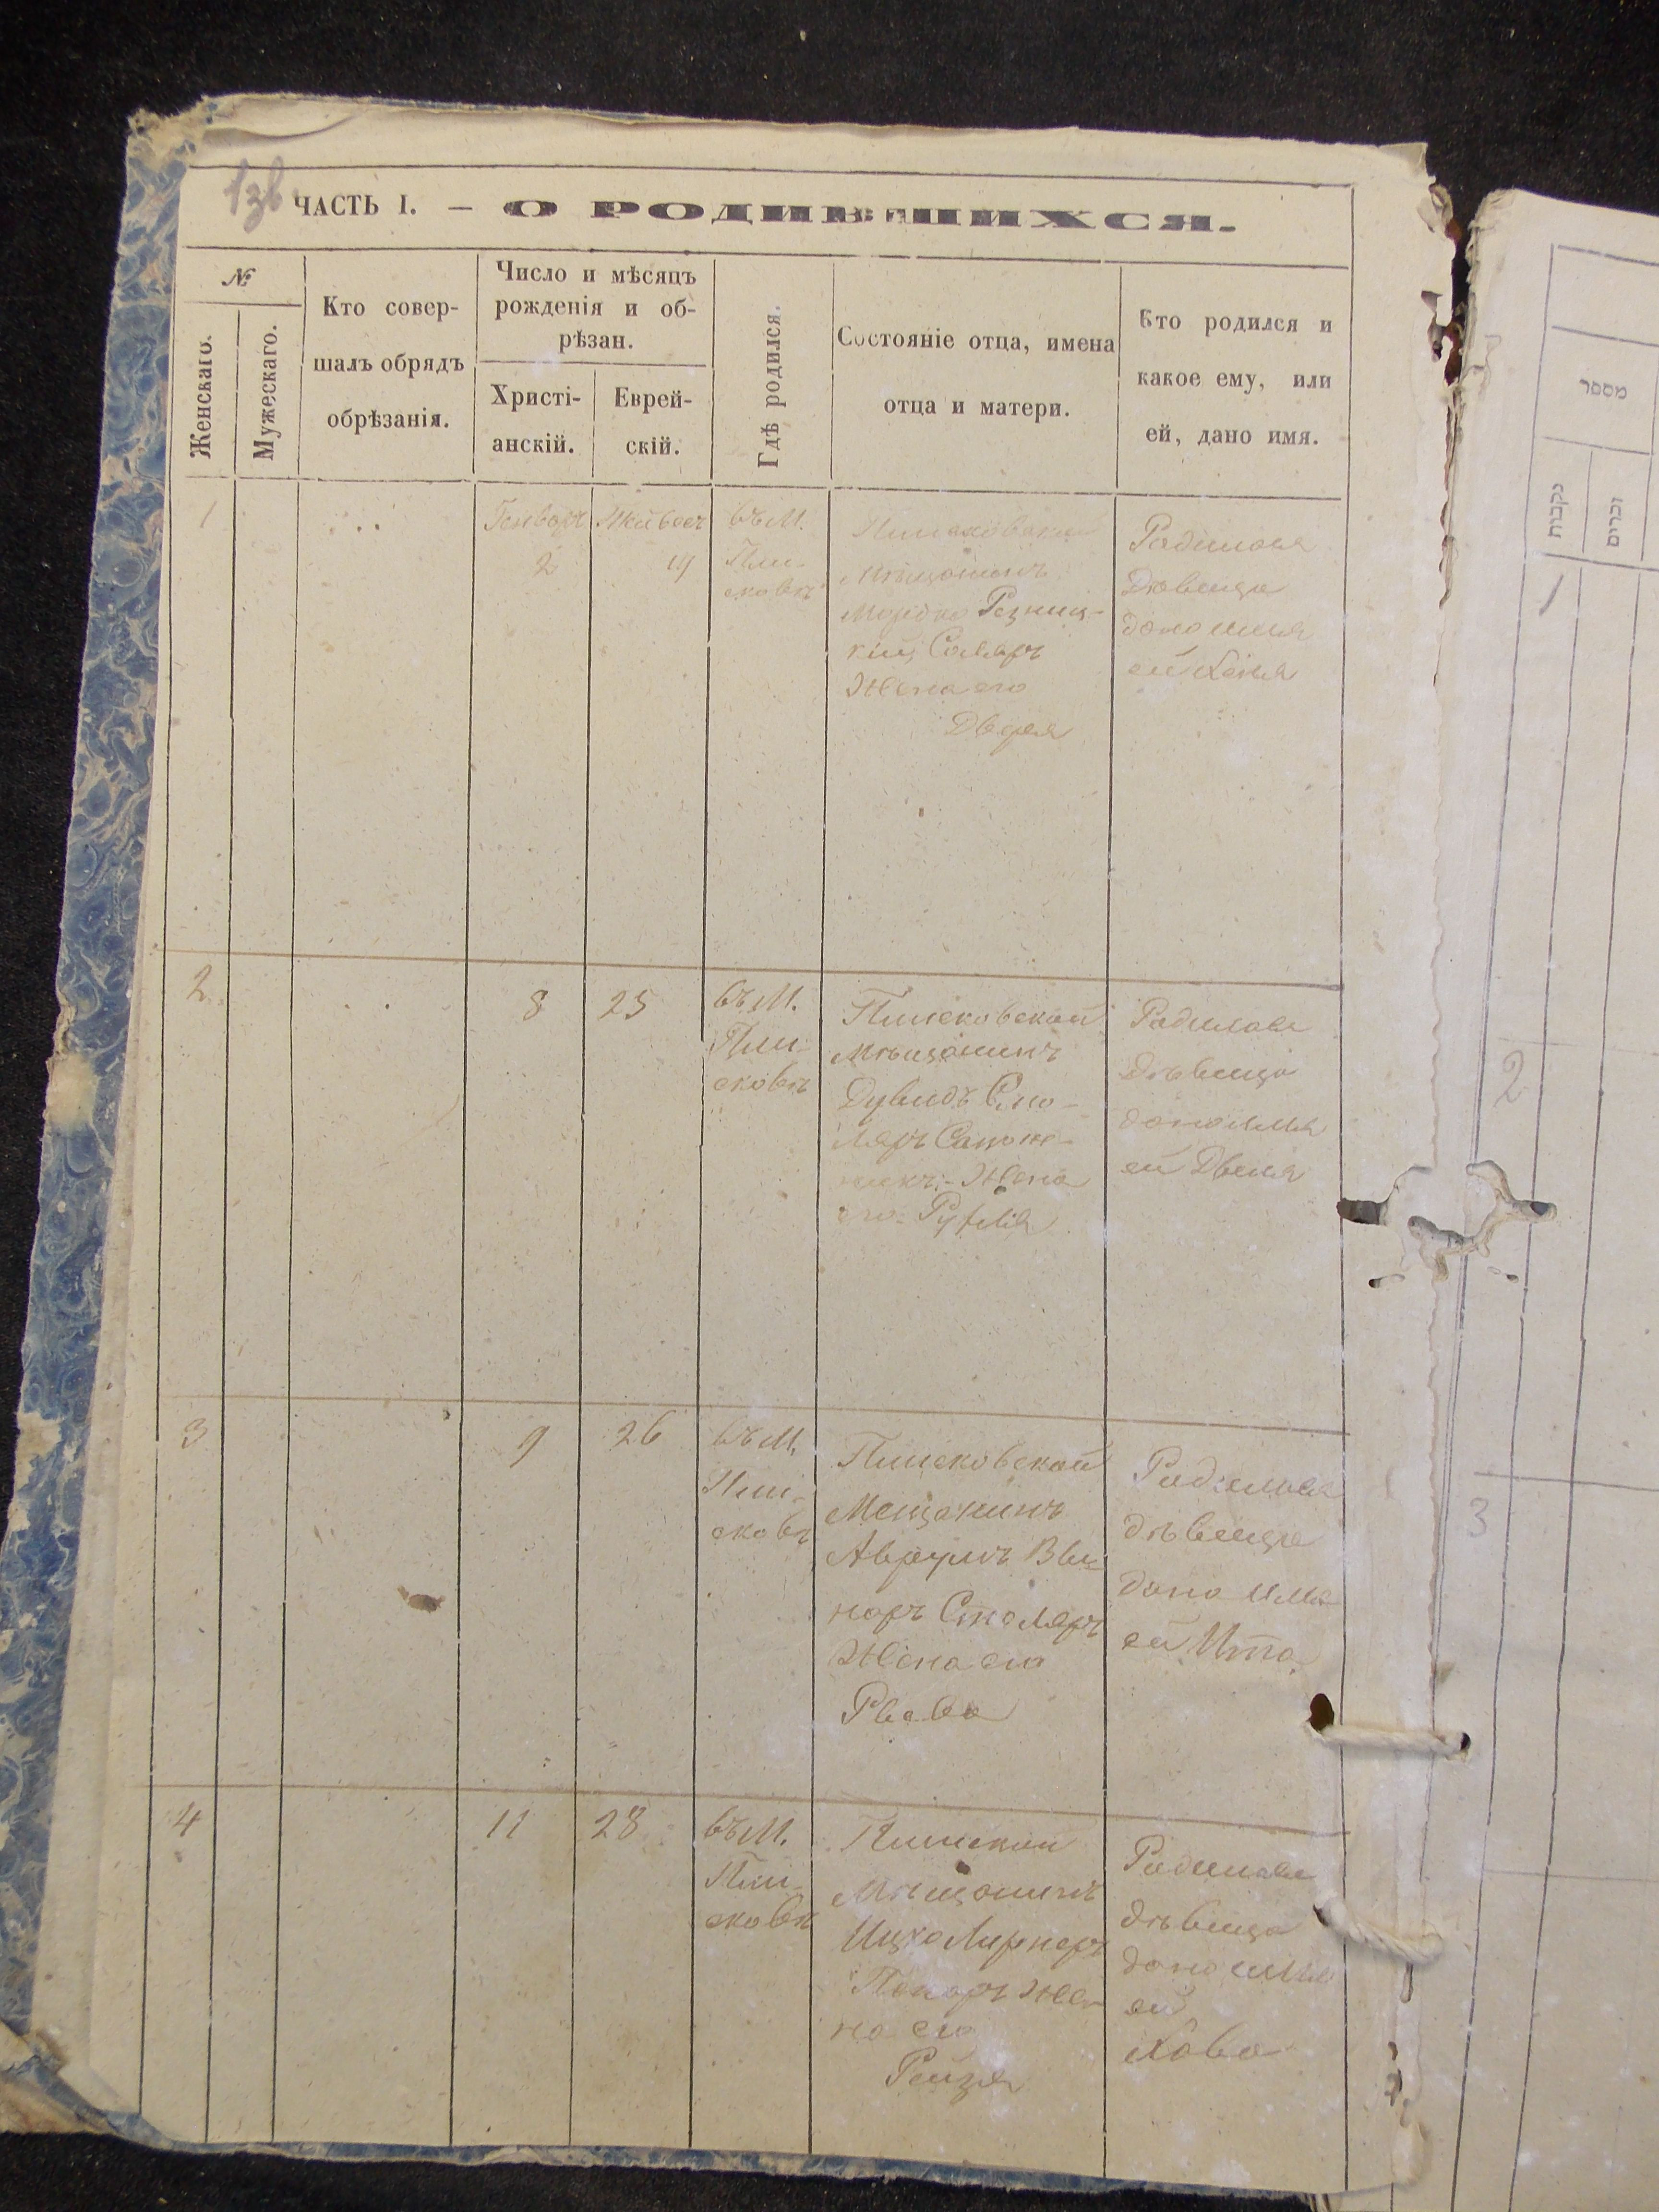 1зв
ЧАСТЬ I. — О РОДИВШИХСЯ.
№
Женскаго.
Мужескаго.
Кто совер-
шалъ обрядъ
обрѣзанія.
Число и мѣсяцъ
рожденія и об-
рѣзан.
Христі-
анскій.
Еврей-
скій.
Гдѣ родился.
Состояніе отца, имена
отца и матери.
Кто родился и
какое ему, или
ей, дано имя.
1
Генваръ
2
19
въ М.
Пли-
сковѣ
Мѣщанинъ
Мордко Резниц-
кій
Жена его
Двойра
Родилась
Дѣвица
дано имя
ей Хана
2
8
25
въ М.
Пли-
сковѣ
Плисковской
Мѣщанинъ
Дувидъ Сто-
ляръ Сапож-
никъ - Жена
его - Рухля
Родилась
дѣвица
дано имя
ей Двися
3
9
26
въ М.
Пли-
сковѣ
Плисковской
Мещанинъ
Аврумъ
наръ Столяръ
Жена его
Родилась
дѣвица
дано имя
ей Ита
4
11
28
въ М.
Пли-
сковѣ
Мѣщанинъ
Ицко Лирнеръ
Пекаръ Же-
на его
Рейзя
Родилась
дѣвица
дано имя
ей
Хава
מספר
נקבות
זכרים
1
2
3